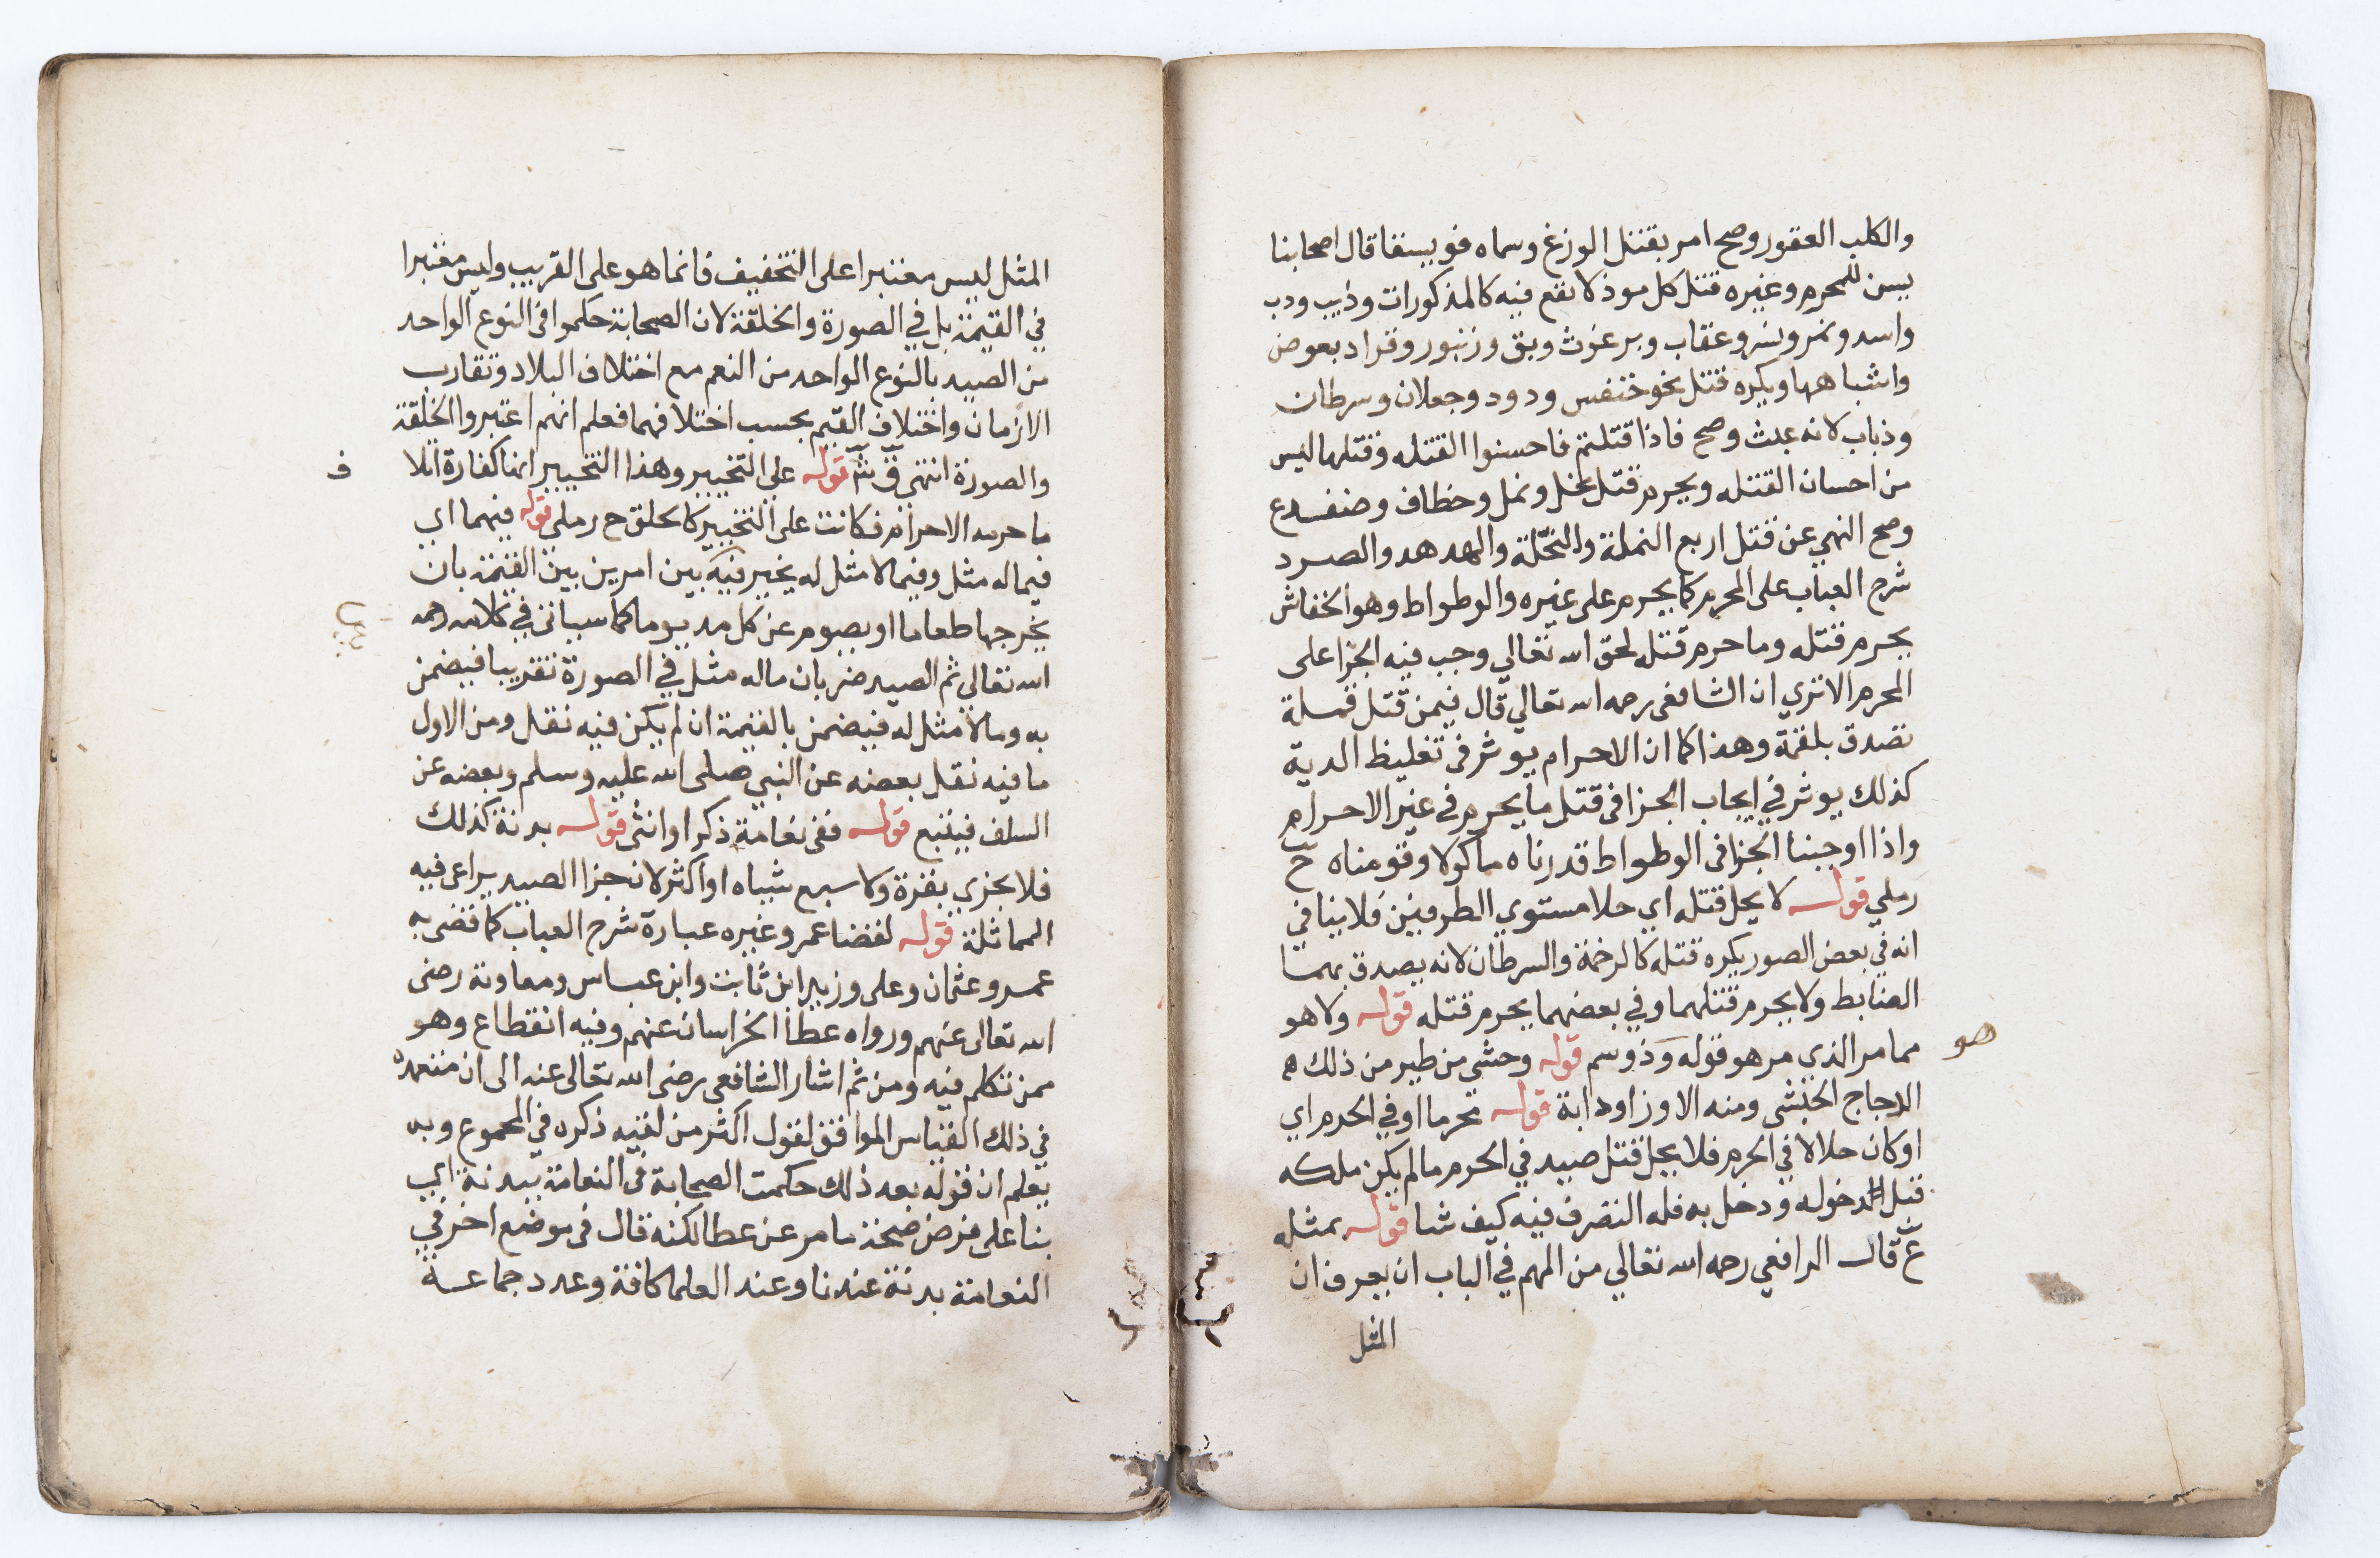 والكلب العقور وصح امر بقتل الوزغ وسماه فويسقا قال اصحابنا
يسن للمحرم وغيره قتل كل موذ لا نفع فيه كالمذكورات وذيب ودب
واسد ونمر ونسر وعقاب وبرغوث وبق وزنبور وقراد بعوض
واشباهها ويكره قتل نحو خنفس ودود وجعلان وسرطان
وذباب لانه عبث وصح فاذا قتلتم فاحسنوا القتله وقتلها ليس
من احسان القتله ويحرم قتل نحل ونمل وخطاف وضفدع
وصح النهي عن قتل اربع النملة والنحلة والهدهد والصرد
شرح العباب على المحرم كما يحرم على غيره والوطواط وهو الخفاش
يحرم قتله وما حرم قتله لحق الله تعالي وجب فيه الجزا على
المحرم الا تري ان الشافعي رحمه الله تعالي قال فيمن قتل قملة
تصدق بلقمة وهذا كما ان الاحرام يوثر في تغليظ الدية
كذلك يوثر في ايجاب الجزا في قتل ما يحرم في غير الاحرام
واذا اوجبنا الجزا في الوطواط قدرناه ماكولا وقومناه ح
رملي قوله لا يحل قتله اي حلا مستوي الطرفين فلا ينافي
انه في بعض الصور يكره قتله كالرخمة والسرطان لانه يصدق بهما
الضابط ولا يحرم قتلهما وفي بعضهما يحرم قتله قوله ولا هو
مما مر الذي مر هو قوله وذو سم قوله وحشي من طير من ذلك
هو
الدجاج الحبشى ومنه الاوز او دابة قوله محرما او في الحرم اي
او كان حلالا في الحرم فلا يحل قتل صيد في الحرم ما لم يكن ملكه
قبل دخوله ودخل به فله التصرف فيه كيف شا قوله بمثله
ع قال الرافعي رحمه الله تعالي من المهم في الباب ان يعرف ان
المثل
المثل ليس معتبرا على التخفيف فانما هو على القريب وليس معتبرا
في القيمة بل في الصورة والخلقة لان الصحابة حكموا في النوع الواحد
من الصيد بالنوع الواحد من النعم مع اختلاف البلاد وتقارب
الازمان واختلاف القيم بحسب اختلافهما فعلم انهم اعتبروا الخلقة
والصورة انتهي ق ش قوله على التخيير وهذا التخيير انها كفارة اتلا
ف
ما حرمه الاحرام فكانت على التخيير كالحلق ح رملي قوله فيهما اي
فيما له مثل وفيما لا مثل له يخير فيه بين امرين بين القيمة بان
يخرجها طعاما او يصوم عن كل مد يوما كما سياتي في كلامه رحمه
الله تعالى ثم الصيد ضربان ماله مثل في الصورة تقريبا فيضمن
به وما لا مثل له فيضمن بالقيمة ان لم يكن فيه نقل ومن الاول
ما فيه نقل بعضه عن النبي صلى الله عليه وسلم وبعضه عن
السلف فيتبع قوله ففي نعامة ذكرا او انثى قوله بدنة كذلك
فلا يجزي بقرة ولا سبع شياه او اكثر لان جزا الصيد يراعى فيه
المماثلة قوله لقضا عمر وغيره عبارة شرح العباب كما قضى به
عمر وعثمان وعلى وزيد ابن ثابت وابن عباس ومعاوية رضى
الله تعالى عنهم ورواه عطا الخراسان عنهم وفيه انقطاع وهو
ممن تكلم فيه ومن ثم اشار الشافعي رضى الله تعالى عنه الى ان معتمده
في ذلك القياس الموافق لقول اكثر من لقيه ذكره في المجموع وبه
يعلم ان قوله بعد ذلك حكمت الصحابة في النعامة ببدنة اي
بنا على فرض صحة ما مر عن عطا لكنه قال في موضع اخر في
النعامة بدنة عندنا وعند العلما كافة وعدد جماعة